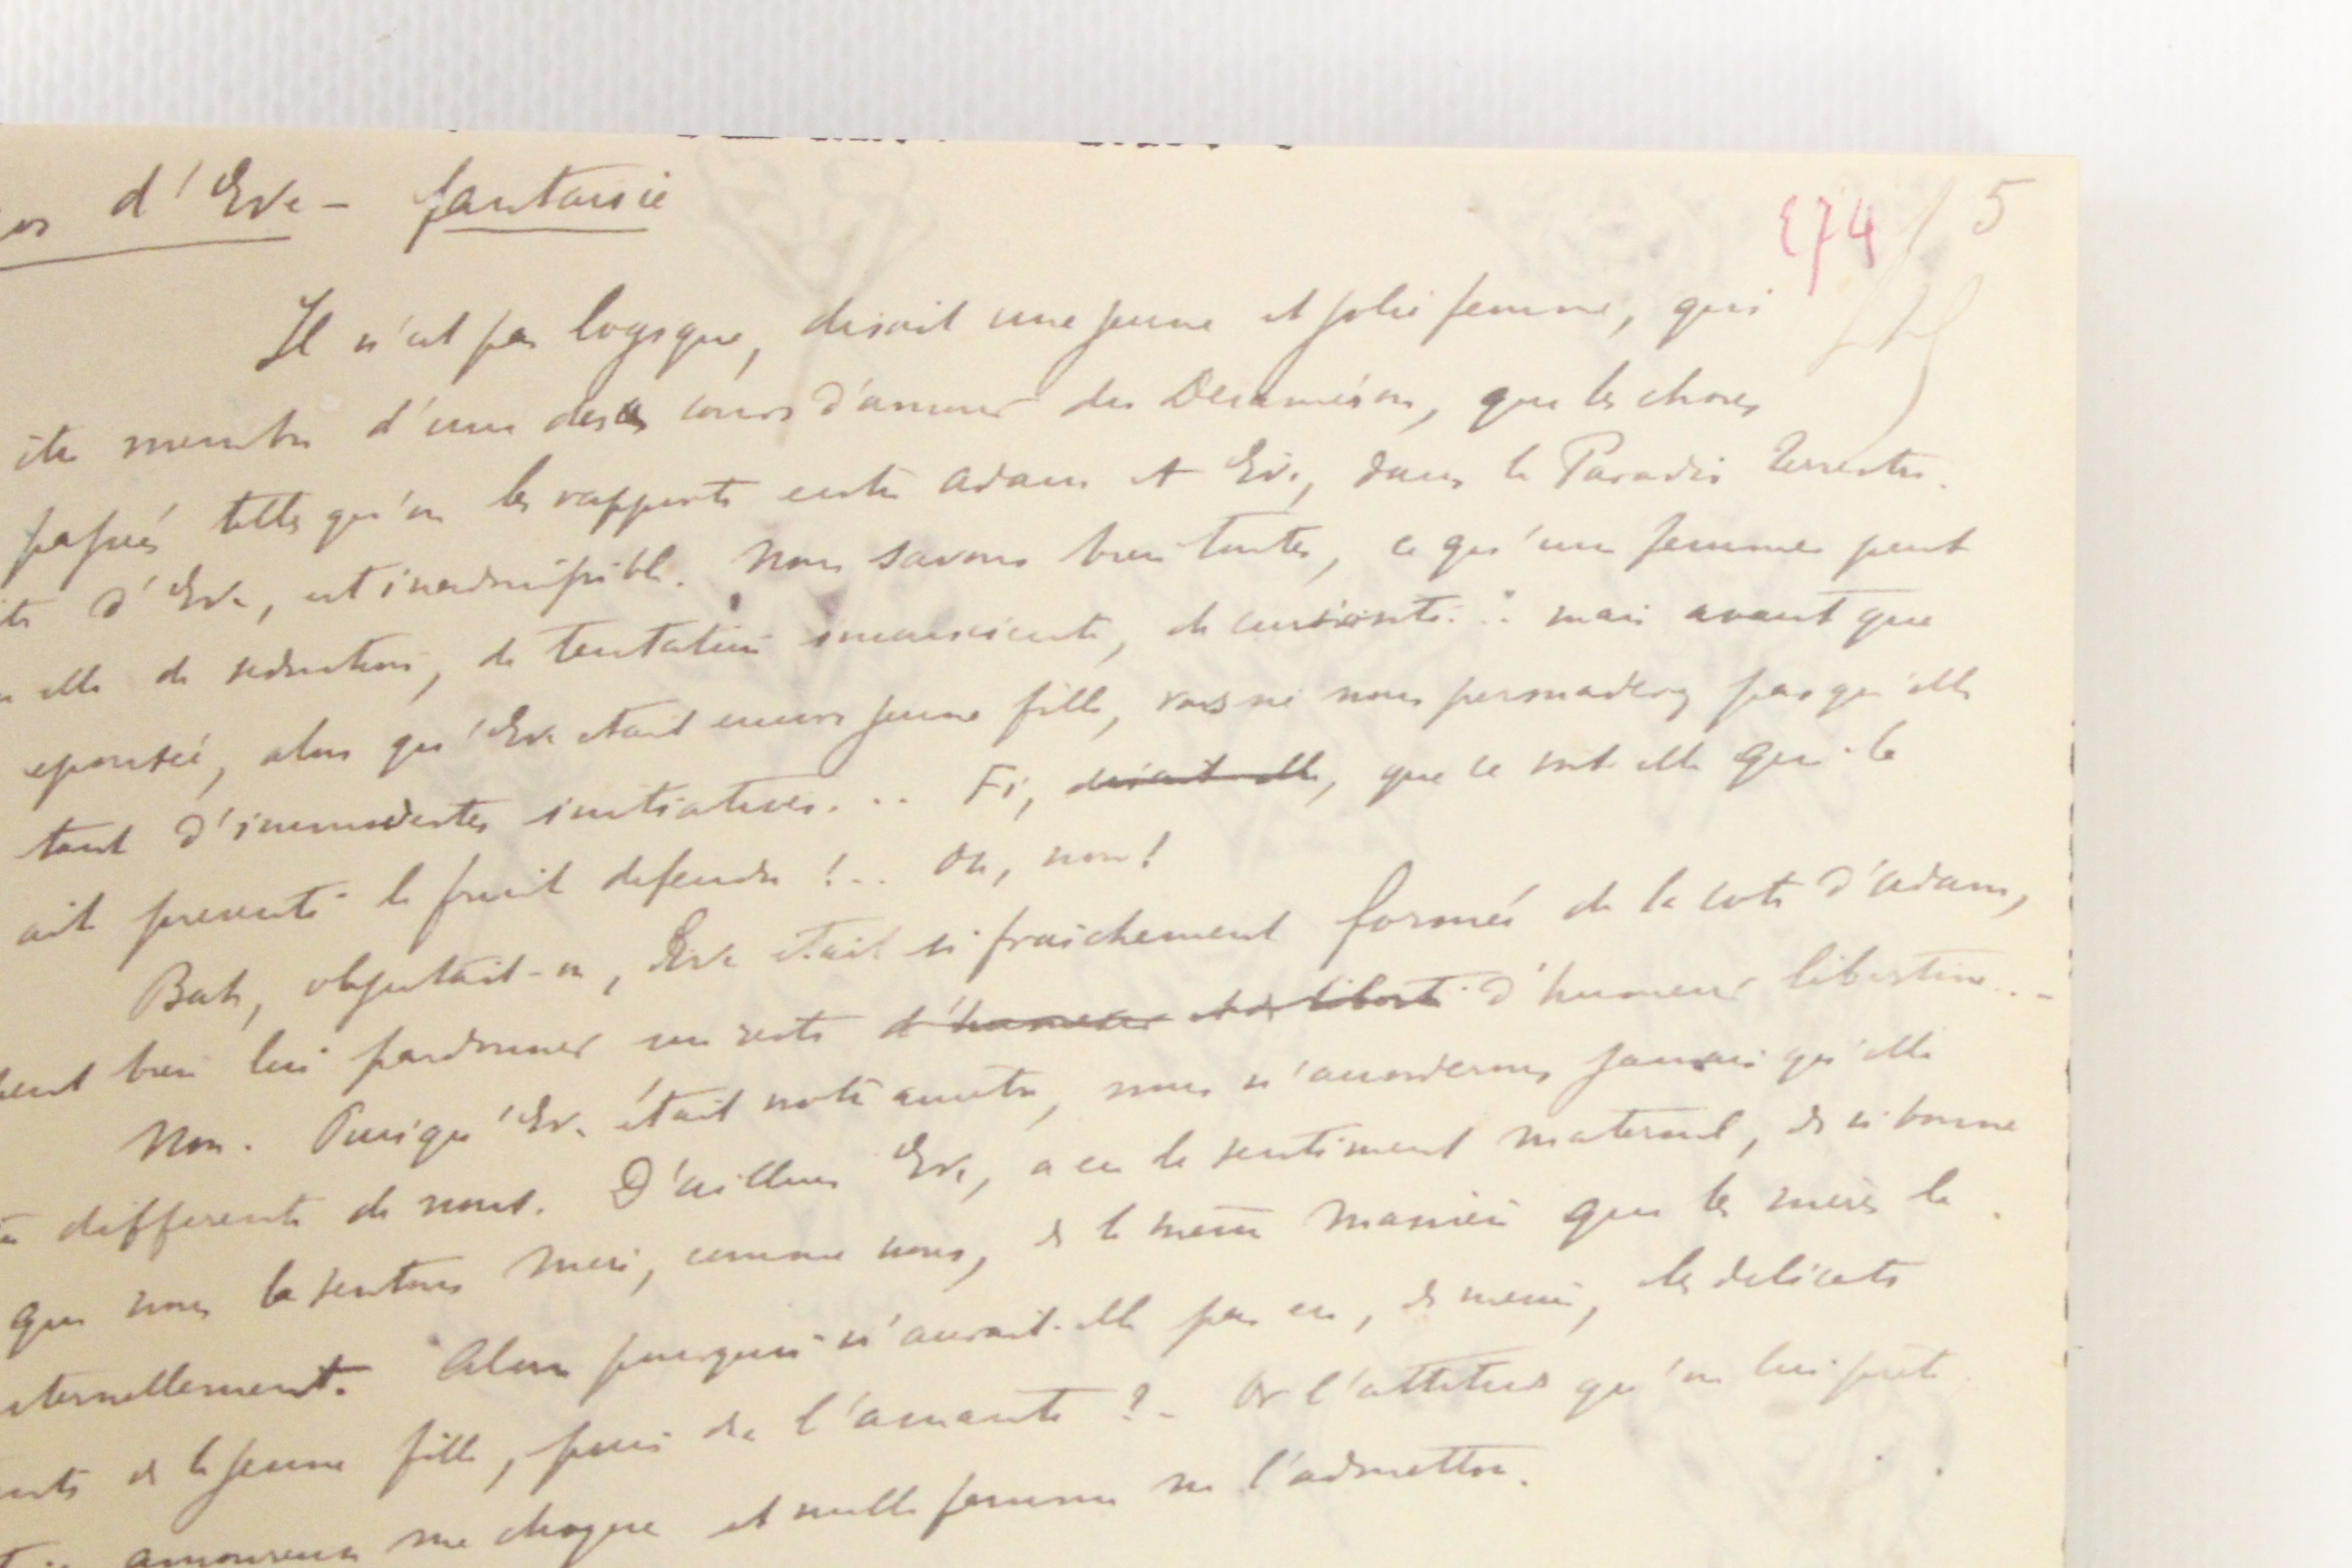 d'Eve - fantaisie
E74 / 5
Il n'est pas logique, disait une jeune et jolie femme, qui
être membre d'une des cours d'amour du Décaméron, que les choses
passées telles qu'on les rapporte entre Adam et Eve, dans le Paradis Terrestre.
d'Eve, est inadmissible. Nous savons bien toutes, ce qu'une femme peut
elle de séduction, de tentation inconsciente, de curiosité... mais avant que
epousée, alors qu'Eve etait encore jeune fille, vous ne nous persuaderez pas qu'elle
tant d'immodestes initiatives... Fi, disait elle, que ce soit elle qui la
ait presenté le fruit defendu !... Oh, non !
Bah, objectait-on, Eve était si fraichement formée de la cote d'Adam,
peut bien lui pardonner un reste d'humeur et de liberté d'humeur libertine...
Non. Puisqu'Eve était notre ancetre, nous n'accorderons jamais qu'elle
differente de nous. D'ailleurs Eve, a eu le sentiment maternel, de si bonne
que nous la sentons mère, comme nous, de la meme manière que les mères le
eternellement. Alors pourquoi n'aurait-elle pas eu, de meme, les delicats
de la jeune fille, puis de l'amante ? - Or l'attitude qu'on lui prete
amoureux me choque et nulle femme ne l'admettra.